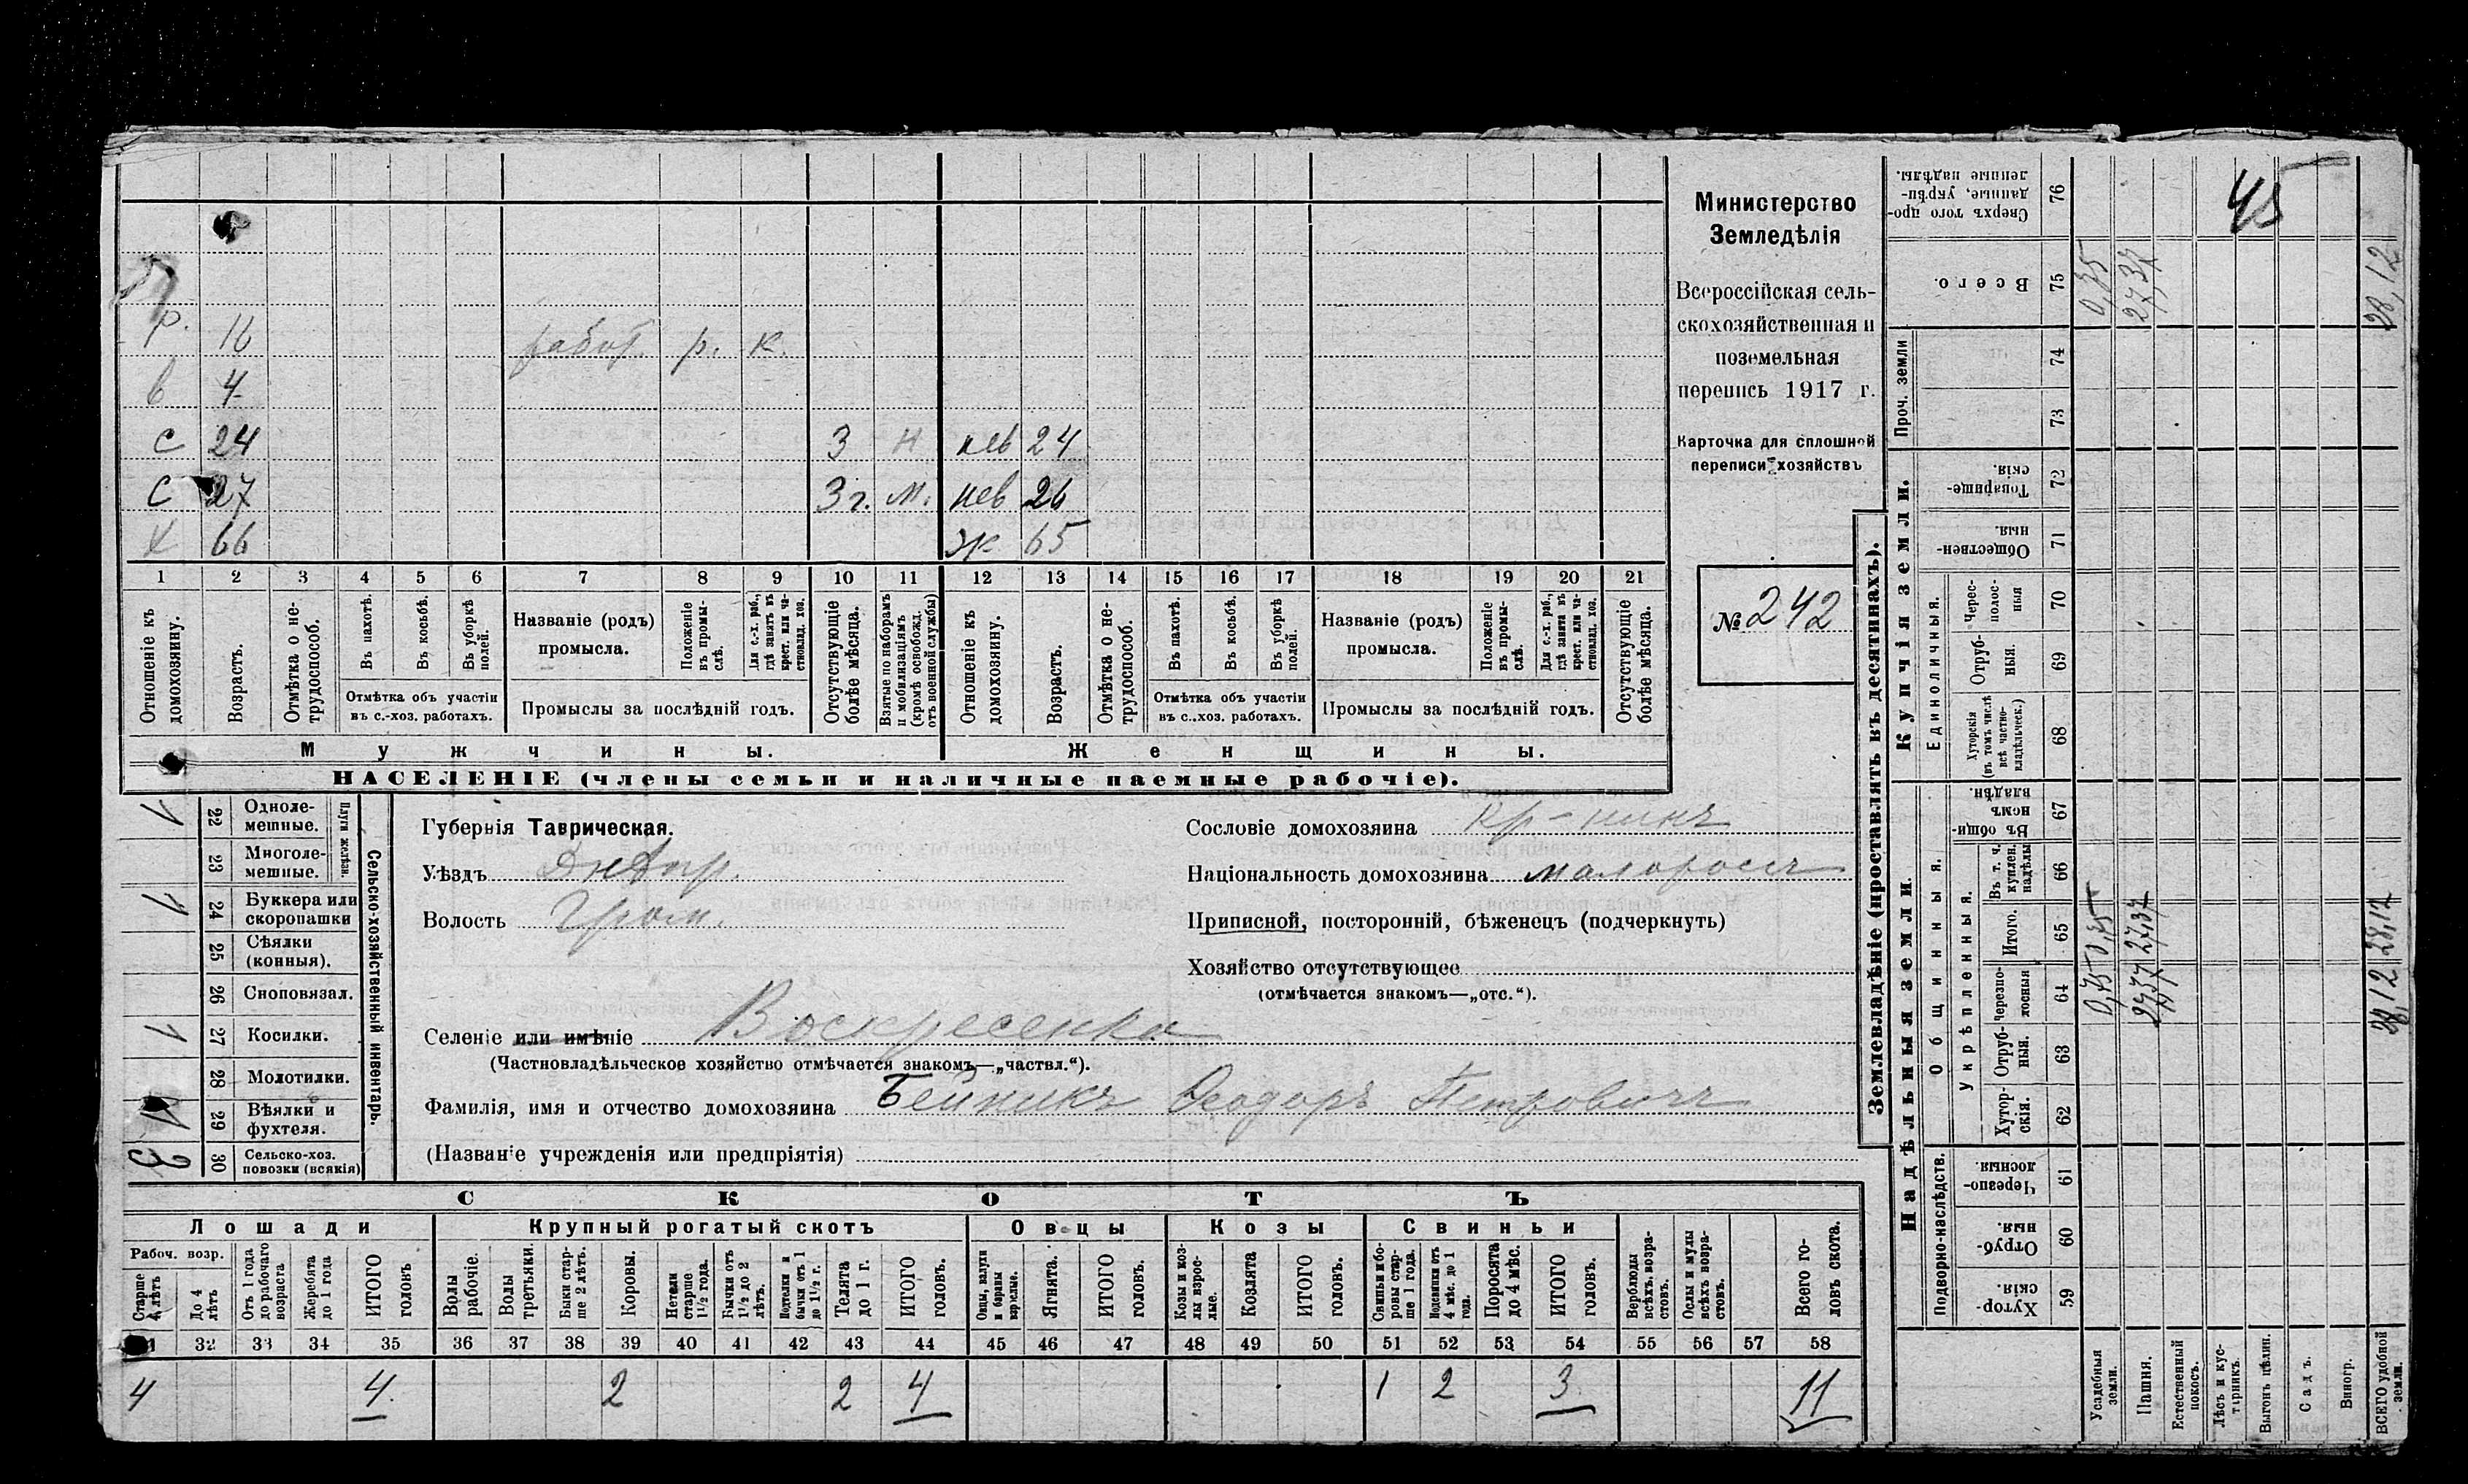 Р. 16 работ. р. к.
в 4
с 24 3 Н нев 24
с 27 3 г. м. нев 26
х 66 ж 65
1 2 3 4 5 6 7 8 9 10 11 12 13 14 15 16 17 18 19 20 21
Отношеніе къ домохозяину.
Возрастъ.
Отмѣтка о не-трудоспособ.
Въ пахотѣ.
Въ косьбѣ.
Въ уборкѣ полей.
Отмѣтка объ участіи
въ с.-хоз. работахъ.
Названіе (родъ)
промысла.
Положеніе въ промы-слѣ.
Для с.-х. раб., гдѣ занятъ въ крест. или ча-стновлад. хоз.
Промыслы за послѣдній годъ.
Отсутствующіе болѣе мѣсяца.
Взятые по наборамъ и мобилизаціямъ (кромѣ освобожд. отъ военной службы)
Отношеніе къ домохозяину.
Возрастъ.
Отмѣтка о не-трудоспособ.
Въ пахотѣ.
Въ косьбѣ.
Въ уборкѣ полей.
Отмѣтка объ участіи
въ с.-хоз. работахъ.
Названіе (родъ)
промысла.
Положеніе въ промы-слѣ.
Для с.-х. раб., гдѣ занята въ крест. или ча-стновлад. хоз.
Промыслы за послѣдній годъ.
Отсутствующіе болѣе мѣсяца.
Мужчины. Женщины.
НАСЕЛЕНІЕ (члены семьи и наличные наемные рабочіе).
Министерство
Земледѣлія
Всероссійская сель-
скохозяйственная и
поземельная
перепись 1917 г.
Карточка для сплошной
переписи хозяйствъ
№ 242
1 22 Одноле-мешные.
23 Многоле-мешные.
Плуги желѣзн.
1 24 Буккера или скоропашки
25 Сѣялки (конныя).
26 Сноповязал.
1 27 Косилки.
28 Молотилки.
1 29 Вѣялки и фухтеля.
30 Сельско-хоз. повозки (всякія)
Сельско-хозяйственный инвентарь.
Губернія Таврическая.
Уѣздъ Днѣпр.
Волость Гром.
Селеніе или имѣніе Воскресенка
(Частновладѣльческое хозяйство отмѣчается знакомъ—„частвл.“).
Фамилія, имя и отчество домохозяина Бейникъ Ѳеодоръ Петровичъ
(Названіе учрежденія или предпріятія)
Сословіе домохозяина кр-нинъ
Національность домохозяина малороссъ
Приписной, посторонній, бѣженецъ (подчеркнуть)
Хозяйство отсутствующее
(отмѣчается знакомъ—„отс.“).
СКОТЪ
Лошади Крупный рогатый скотъ Овцы Козы Свиньи
Рабоч. возр.
Старше 4 лѣтъ
До 4 лѣтъ
Отъ 1 года до рабочаго возраста
Жеребята до 1 года
ИТОГО головъ
Волы рабочіе.
Волы третьяки.
Быки стар-ше 2 лѣтъ.
Коровы.
Нетели старше 1½ года.
Бычки отъ 1½ до 2 лѣтъ.
Нетелки и бычки отъ 1 до 1½ г.
Телята до 1 г.
ИТОГО головъ.
Овцы, валухи и бараны взрослые.
Ягнята.
ИТОГО головъ.
Козы и коз-лы взрос-лые.
Козлята
ИТОГО головъ.
Свиньи и бо-ровы стар-ше 1 года.
Подсвинки отъ 4 мѣс. до 1 года.
Поросята до 4 мѣс.
ИТОГО головъ.
Верблюды всѣхъ возра-стовъ.
Ослы и мулы всѣхъ возра-стовъ.
Всего го-ловъ скота.
32 33 34 35 36 37 38 39 40 41 42 43 44 45 46 47 48 49 50 51 52 53 54 55 56 57 58
4 4 2 2 4 1 2 3 11
Землевладѣніе (проставлять въ десятинахъ).
Надѣльныя земли. Купчія земли. Проч. земли
Подворно-наслѣдств.
Общинныя.
Укрѣпленныя.
Единоличныя.
Хутор-скія. 59
Отруб-ныя. 60
Черезпо-лосныя. 61
Хутор-скія. 62
Отруб-ныя. 63
Черезпо-лосныя 64
Итого. 65
Въ т. ч. куплен. надѣлы 66
Въ общи-номъ владѣн. 67
Хуторскія (въ томъ числѣ всѣ частно-владѣльческ.) 68
Отруб-ныя. 69
Черес-полос-ныя 70
Обществен-ныя. 71
Товарище-скія. 72
73
74
Всего. 75
Сверхъ того про-данные, укрѣп-ленные надѣлы. 76
Усадебныя земли. 0,75 0,75 0,75
Пашня. 27,37 27,37 27,37
Естественный покосъ.
Лѣсъ и кус-тарникъ.
Выгонъ цѣлин.
Садъ.
Виногр.
ВСЕГО удобной земли. 28,12 28,12 28,12
45